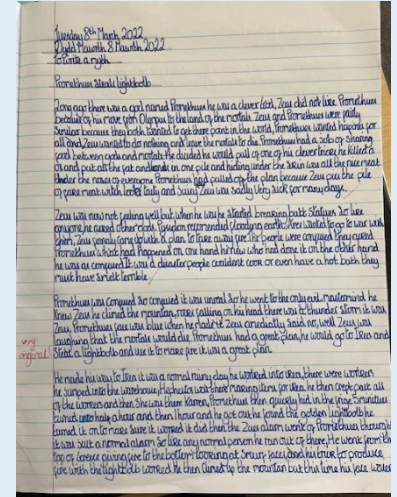 Tuesday 8th March 2022
Dydd Mawrth 8 Mawrth 2022
to write a myth
Prometheus steals lightbolb
Long ago there was a god named Prometheus he was a clever God, Zeus did not like Prometheus
because of his move from Olympus to the land of the mortals. Zeus and Prometheus were pritty
because they both wanted to get there point in the world, Prometheus wanted
all and Zeus wanted to do nothing and leave the mortals to die. Prometheus had a job of sharing
food between gods and mortals. He decided he would pull of one of his clever he killed a
and put all the fat and in one pile and hiding under the skin was all the nice meat
Under the nose of everyone Prometheus had pulled of the plan because Zeus the pile
of meat with and Zeus was sadly very sick for many days.
Zeus was now not feeling well but when he was he started breaking butt statues so like
anyone he cured other Gods. Poseidon flooding earth. Ares wanted to go to war with
them, Zeus came up with a plan to take away fire. The people were they
Prometheus which had happened on one hand he new who had done it on the other hand
he was as It was a disaster people couldent cook or even have a hot bath they
must have smelt terrible.
Prometheus was so it was unreal so he went to the only evil mastermind he
knew Zeus he climed the mountain, rain falling on his head there was a thunder storm it was
Zeus. Prometheus face was blue when he Zeus said no, well Zeus was
laughing that the mortals would die. Prometheus had a great plan, he would go to Ikea and
Steal a lightbolb and use it to make fire it was a great plan.
very
original!
He made his way to Ikea it was a normal rainy day he walked into Ikea, there were workers
he jumped into the warehouse, was there making items for Ikea, he then crept past all
of the women and then She was there Karen, Prometheus then quickly hid in the frige 5 minutes
turned into half a hour and then 1 hour and he got out he found the golden lightbolb he
turned it on to make sure it worked it did then the Zeus alarm went of Prometheus thought
it was just a normal alarm so like any normal person he ran out of there, He went from the
top of Greece giving fire to the bottom looking at faces and his to produce
fire with the lightbolb worked He then climed up the mountain but this time his face was